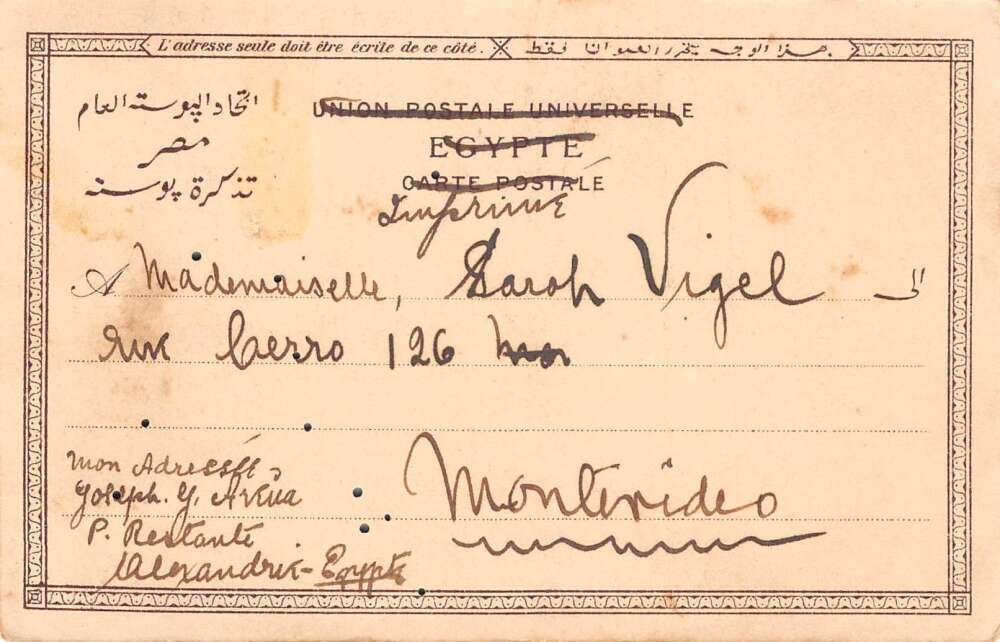 L'adresse seule doit être écrite de ce côté. هذا الوجه يحرر العنوان فقط
اتحاد البوسته العام
مصر
تذكرة بوسته
UNION POSTALE UNIVERSELLE
EGYPTE
CARTE POSTALE
Imprimé
A Mademaiselle, Sarah Vigel الى
rue Cerro 126
Montevideo
mon Adressée,
Joseph. Y. Arkia
P. Restante
Alexandrie - Egypte